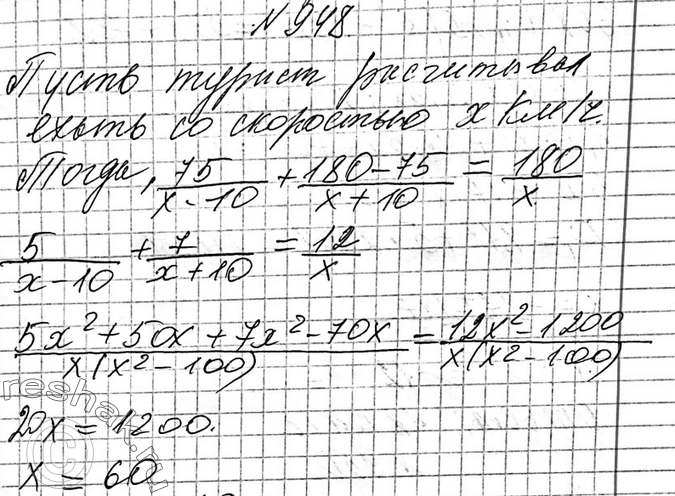 №948
Пусть турист расчитывал
ехать со скоростью x км/ч.
Тогда, 75/(x-10) + (180-75)/(x+10) = 180/x
5/(x-10) + 7/(x+10) = 12/x
(5x²+50x+7x²-70x)/(x(x²-100)) = (12x²-1200)/(x(x²-100))
20x=1200.
x=60
reshak.ru